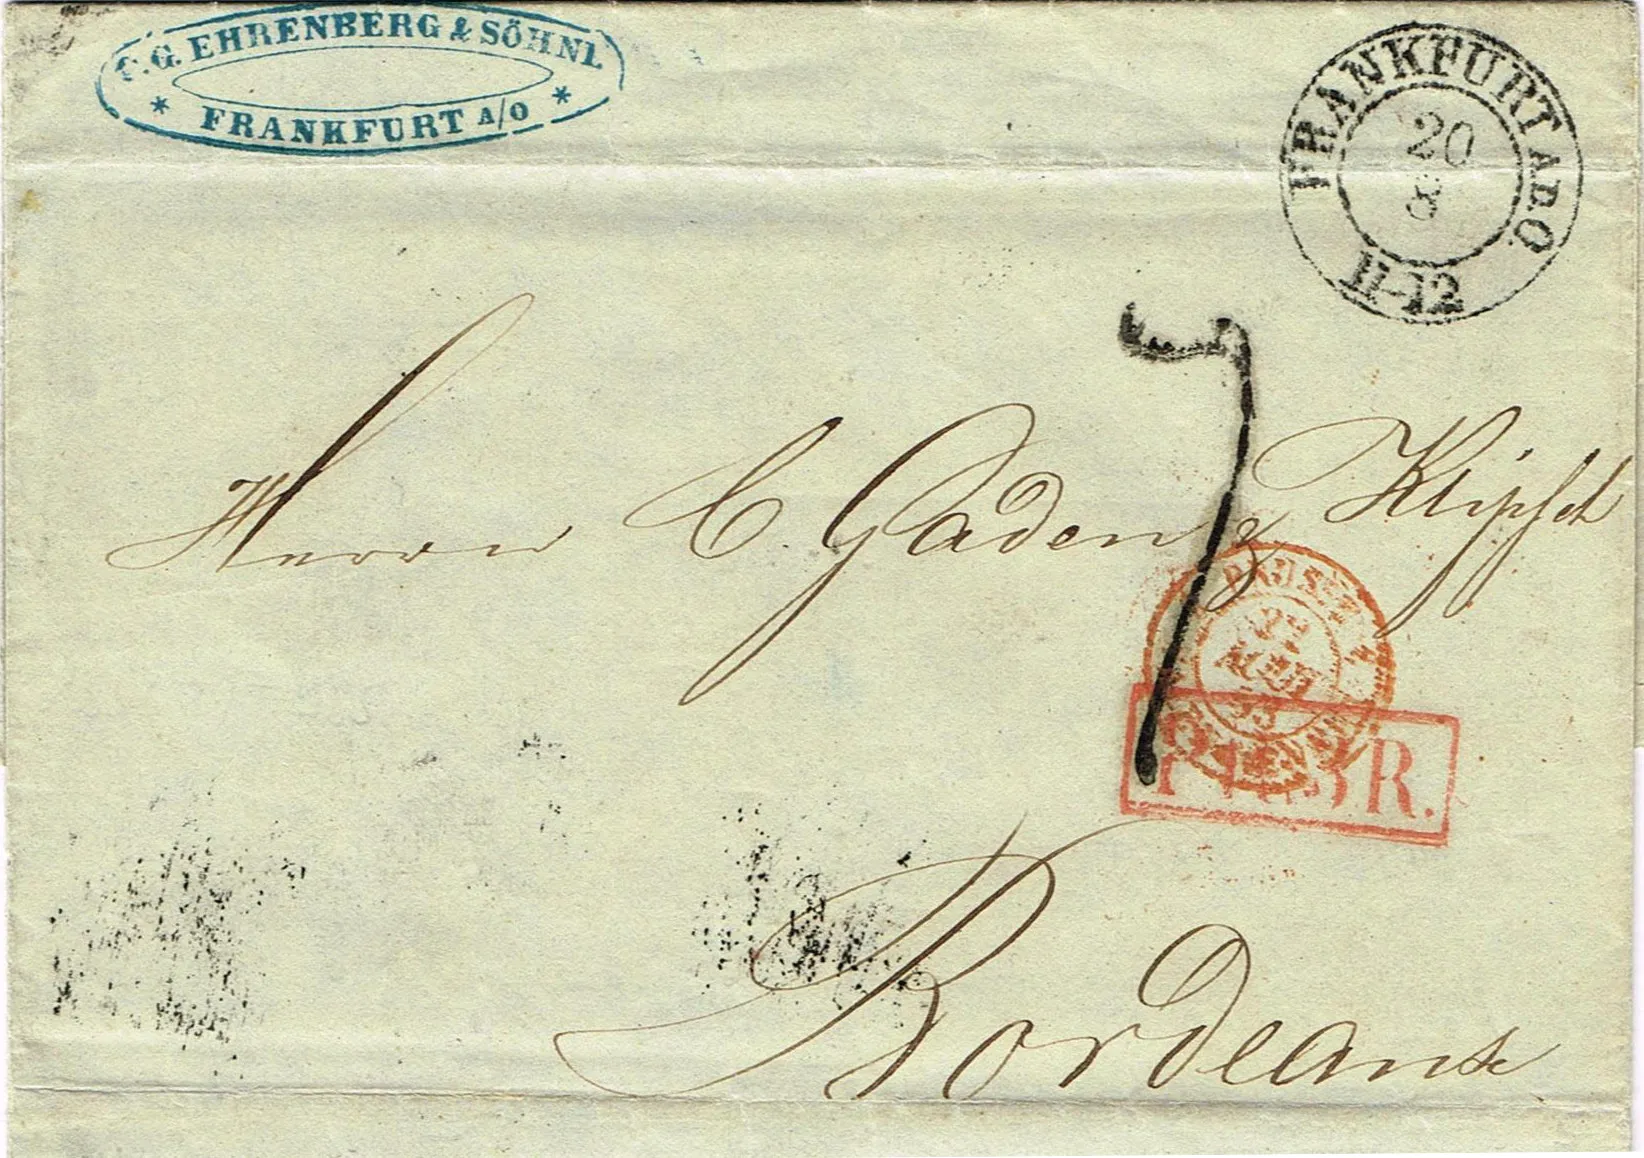 C.G. EHRENBERG & SÖHNE
* FRANKFURT A/O *
FRANKFURT A B O.
20
8
11-12
7
Herrn C. Gaden & Klipsch
AOUT
53
R.
Bordeaux